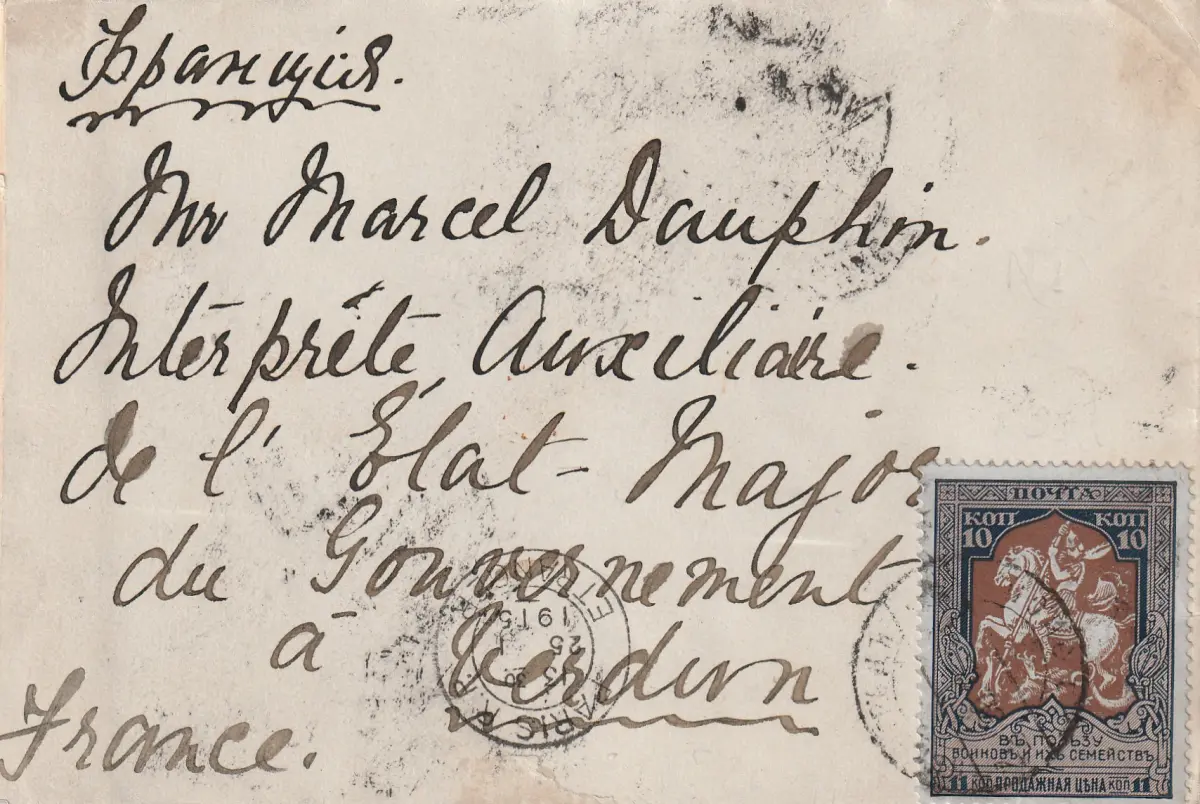 Франція.
Mr Marcel Dauphin.
Interprête Auxiliaire.
de l' État-Major
du Gouvernement
à Verdun
France.
ПОЧТА
КОП КОП
10 10
ВЪ ПОЛЬЗУ
ВОИНОВЪ И ИХЪ СЕМЕЙСТВЪ
11 КОП ПРОДАЖНАЯ ЦѢНА КОП 11
PARIS
25
1915
ETRANGER